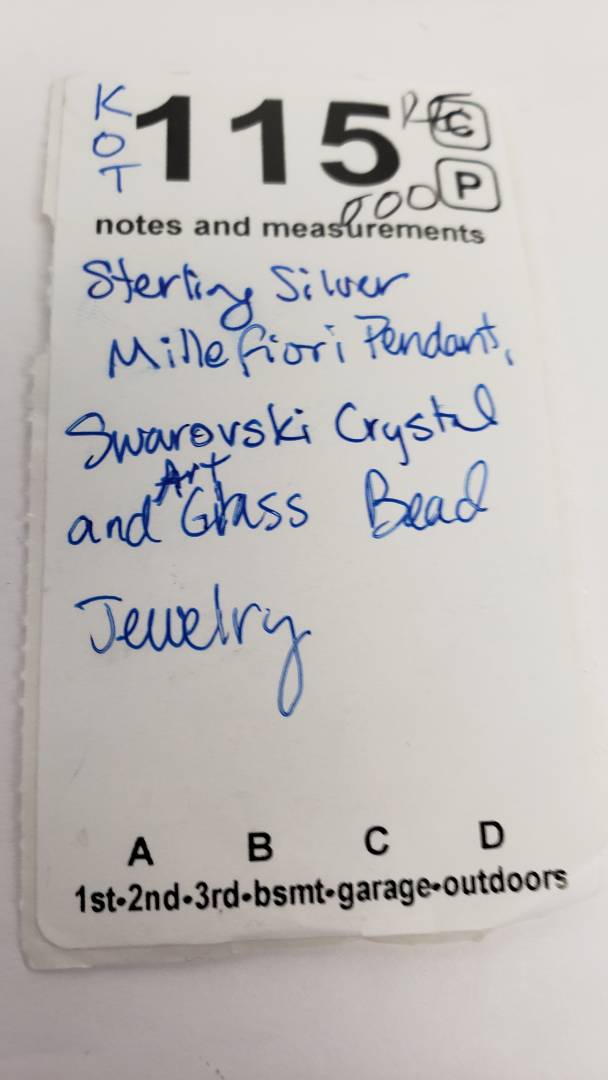 KOT
115
C
P
notes and measurements
Sterling Silver
Millefiori Pendant,
Swarovski Crystal
and Art Glass Bead
Jewelry
A B C D
1st•2nd•3rd•bsmt•garage•outdoors